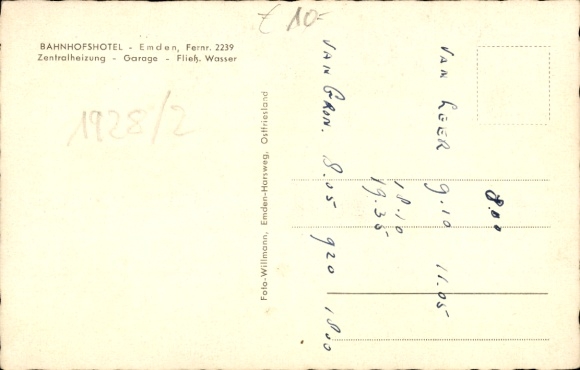 € 10-
BAHNHOFSHOTEL - Emden, Fernr. 2239
Zentralheizung - Garage - Fließ. Wasser
1928/2
Foto-Willmann, Emden-Harsweg, Ostfriesland
8.00
VAN LEER 9.10 11.05
18.10
19.35
VAN GRON. 8.05 920 1800